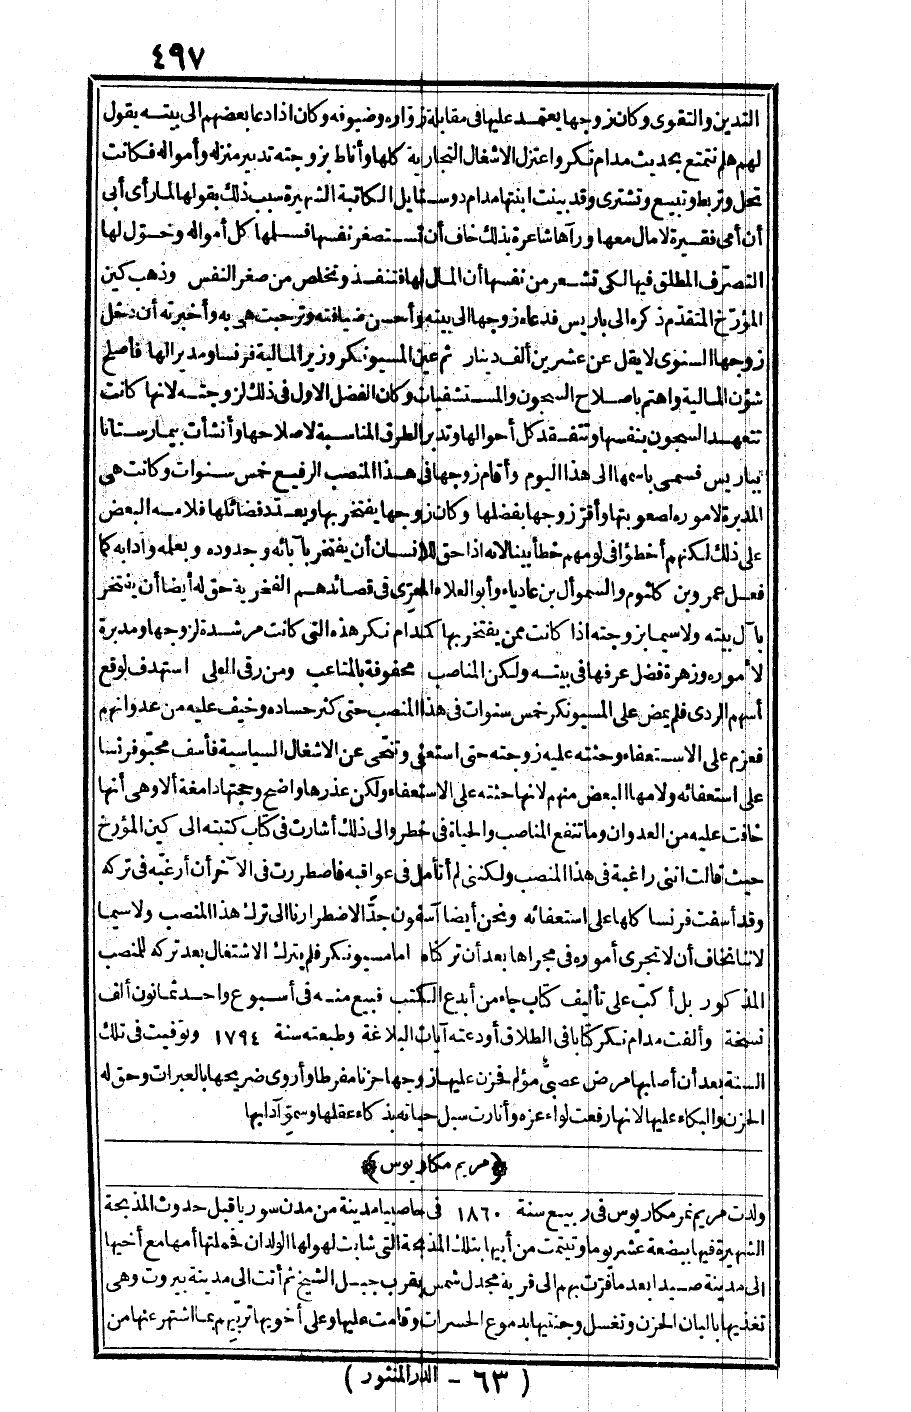 ٤٩٧
التدين والتقوى وكان زوجها يعتمد عليها فى مقابلة زواره وضيوفه وكان اذا دعا بعضهم الى بيته يقول
لهم هلم نتمتع بحديث مدام نكر واعتزل الاشغال التجارية كلها وأناط بزوجته تدبير منزله وأمواله فكانت
تحل وتربط وتبيع وتشترى وقد بينت ابنتها مدام دوستايل الكاتبة الشهيرة سبب ذلك بقولها لما رأى أبى
أن أمى فقيرة لا مال معها ورآها شاعرة بذلك خاف أن تستصغر نفسها فسلمها كل أمواله وخوّل لها
التصرّف المطلق فيها لكى تشعر من نفسها أن المال لها فتنفذ وتخلص من صغر النفس وذهب كين
المؤرّخ المتقدّم ذكره الى باريس فدعاه زوجها الى بيته وأحسن ضيافته وترحبت هى به وأخبرته أن دخل
زوجها السنوى لا يقل عن عشرين ألف دينار ثم عين المسيو نكر وزير المالية فرنسا ومديرا لها فأصلح
شؤن المالية واهتم باصلاح السجون والمستشفيات وكان الفضل الاول فى ذلك لزوجته لانها كانت
تتعهد السجون بنفسها وتتفقد كل أحوالها وتدبر الطرق المناسبة لاصلاحها وأنشأت بيمارستانا
بباريس فسمى باسمها الى هذا اليوم وأقام زوجها فى هذا المنصب الرفيع خمس سنوات وكانت هى
المدبرة لاموره اصعوبتها وأقرّ زوجها بفضلها وكان زوجها يفتخر بها ويعدّد فضائلها فلامه البعض
على ذلك لكنهم أخطؤا فى لومهم خطأ بينا لانه اذا حق للانسان أن يفتخر بآبائه وجدوده وبعلمه وآدابه كما
فعل عمرو بن كلثوم والسموأل بن عادياء وأبو العلاء المعرّى فى قصائدهم الفخرية حق له أيضا أن يفتخر
بآل بيته ولا سيما بزوجته اذا كانت ممن يفتخر بها كمدام نكر هذه التى كانت مرشدة لزوجها ومدبرة
لأموره وزهرة فضل عرفها فى بيته ولكن المناصب محفوفة بالمتاعب ومن رقى العلى استهدف لوقع
أسهم الردى فلم يمض على المسيو نكر خمس سنوات فى هذا المنصب حتى كثر حساده وخيف عليه من عدوانهم
فعزم على الاستعفاء وحثته عليه زوجته حتى استعفى وتنحى عن الاشغال السياسية فأسف محبّو فرنسا
على استعفائه ولامها البعض منهم لانها حثته على الاستعفاء ولكن عذرها واضح وحجتها دامغة ألا وهى أنها
خافت عليه من العدوان وما تنفع المناصب والحياة فى خطر والى ذلك أشارت فى كتاب كتبته الى كين المؤرخ
حيث قالت اننى راغبة فى هذا المنصب ولكننى لم أتأمل فى عواقبه فاضطررت فى الآخر أن أرغبه فى تركه
وقد أسفت فرنسا كلها على استعفائه ونحن أيضا آسفون جدّا لاضطرارنا الى ترك هذا المنصب ولا سيما
لاننا نخاف أن لا تجرى أموره فى مجراها بعد أن تركناه اما مسيو نكر فلم يترك الاشتغال بعد تركه للمنصب
المذكور بل أكبّ على تأليف كتاب جاء من أبدع الكتب فبيع منه فى أسبوع واحد ثمانون ألف
نسخة وألفت مدام نكر كتابا فى الطلاق أودعته آيات البلاغة وطبعته سنة ١٧٩٤ وتوفيت فى تلك
السنة بعد أن أصابها مرض عصبىّ مؤلم فحزن عليها زوجها حزنا مفرطا وأروى ضريحها بالعبرات وحق له
الحزن والبكاء عليها لانها رفعت لواء عزه وأنارت سبل حياته بذكاء عقلها وسموّ آدابها
﴿مريم مكاريوس﴾
ولدت مريم نمر مكاريوس فى ربيع سنة ١٨٦٠ فى حاصبيا مدينة من مدن سوريا قبل حدوث المذبحة
الشهيرة فيها ببضعة عشر يوما وتيتمت من أبيها بتلك المذبحة التى شابت لهولها الولدان فحملتها أمها مع أخيها
الى مدينة صيدا بعد ما فرّت بهم الى قرية مجدل شمس بقرب جبل الشيخ ثم أتت الى مدينة بيروت وهى
تغذيها بالبان الحزن وتغسل وجنتيها بدموع الحسرات وقامت عليها وعلى أخويها تربيهم عما اشتهر عنها من
(٦٣ - الدر المنثور)